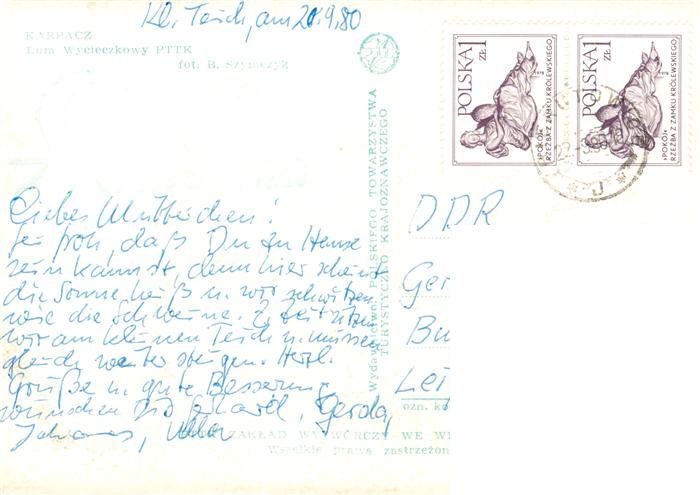 Kl. Teich, am 20.9.80
KARPACZ
Dom Wycieczkowy PTTK
fot. B. Szymczyk
POLSKA 1 ZŁ
»POKÓJ«
RZEŹBA Z ZAMKU KRÓLEWSKIEGO
1978
POLSKA 1 ZŁ
»POKÓJ«
RZEŹBA Z ZAMKU KRÓLEWSKIEGO
1978
Wydawnictwo POLSKIEGO TOWARZYSTWA
TURYSTYCZNO KRAJOZNAWCZEGO
Liebes Mütterchen!
Sei froh, daß Du zu Hause
sein kannst, denn hier scheint
die Sonne heiß u. wir schwitzen
wie die Schweine. Z. Zeit sitzen
wir am kleinen Teich u. müssen
gleich weiter steigen. Herzl.
Grüße u. gute Besserung
wünschen Dir Gerda,
Johannes,
DDR
Ger
Bu
Lei
ozn. ko
ZAKŁAD WYTWÓRCZY WE
Wszelkie prawa zastrzeżon